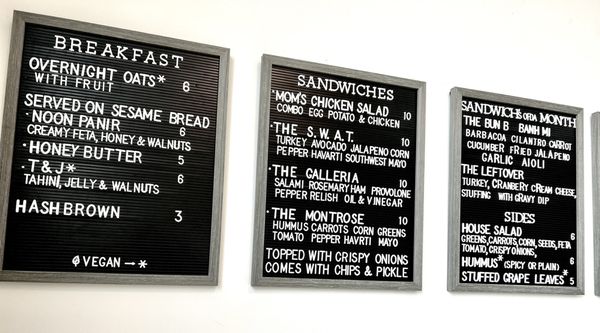 BREAKFAST
OVERNIGHT OATS* 6
WITH FRUIT
SERVED ON SESAME BREAD
·NOON PANIR 6
CREAMY FETA, HONEY & WALNUTS
·HONEY BUTTER 5
·T & J* 6
TAHINI, JELLY & WALNUTS
HASHBROWN 3
VEGAN → *
SANDWICHES
·MOM'S CHICKEN SALAD 10
COMBO EGG POTATO & CHICKEN
·THE S.W.A.T. 10
TURKEY AVOCADO JALAPENO CORN
PEPPER HAVARTI SOUTHWEST MAYO
·THE GALLERIA 10
SALAMI ROSEMARY HAM PROVOLONE
PEPPER RELISH OIL & VINEGAR
·THE MONTROSE 10
HUMMUS CARROTS CORN GREENS
TOMATO PEPPER HAVRTI MAYO
TOPPED WITH CRISPY ONIONS
COMES WITH CHIPS & PICKLE
SANDWICHS OF DA MONTH
THE BUN B BANH MI
BARBACOA CILANTRO CARROT
CUCUMBER FRIED JALAPENO
GARLIC AIOLI
THE LEFTOVER
TURKEY, CRANBERY CREAM CHEESE,
STUFFING WITH GRAVY DIP
SIDES
HOUSE SALAD 6
GREENS, CARROTS, CORN, SEEDS, FETA
TOMATO, CRISPY ONIONS,
HUMMUS* (SPICY OR PLAIN) 6
STUFFED GRAPE LEAVES* 5